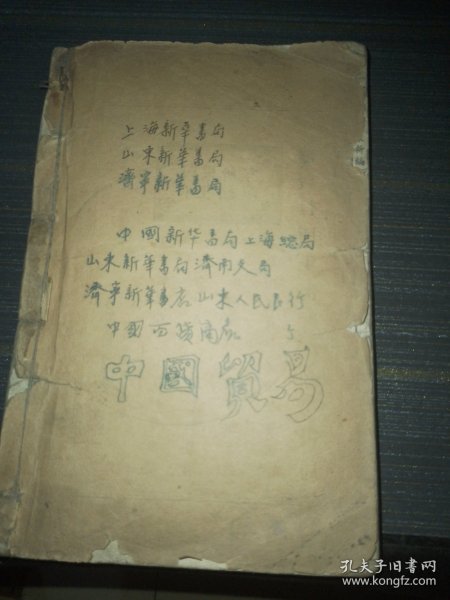 上海新華書局
山東新華書局
濟寧新華書局
中國新华書局上海總局
山东新華書局濟南支局
濟寧新華書店山东人民銀行
中國百貨商店
中國貿易
孔夫子旧书网
www.kongfz.com